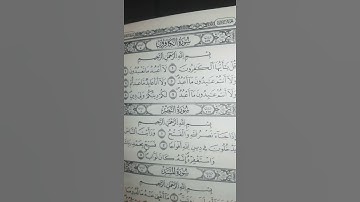 سُورَةُ الكَافِرُونَ
بِسْمِ اللَّهِ الرَّحْمَٰنِ الرَّحِيمِ
قُلْ يَا أَيُّهَا الْكَافِرُونَ ١ لَا أَعْبُدُ مَا تَعْبُدُونَ ٢
وَلَا أَنتُمْ عَابِدُونَ مَا أَعْبُدُ ٣ وَلَا أَنَا عَابِدٌ
وَلَا أَنتُمْ عَابِدُونَ مَا أَعْبُدُ ٥ لَكُمْ دِينُكُمْ وَلِيَ دِينِ
سُورَةُ النَّصْرِ
بِسْمِ اللَّهِ الرَّحْمَٰنِ الرَّحِيمِ
إِذَا جَاءَ نَصْرُ اللَّهِ وَالْفَتْحُ ١ وَرَأَيْتَ النَّاسَ
يَدْخُلُونَ فِي دِينِ اللَّهِ أَفْوَاجًا ٢ فَسَبِّحْ بِحَمْدِ
وَاسْتَغْفِرْهُ إِنَّهُ كَانَ تَوَّابًا ٣
سُورَةُ المَسَدِ
بِسْمِ اللَّهِ الرَّحْمَٰنِ الرَّحِيمِ